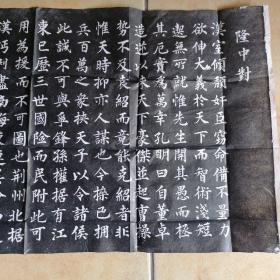 隆中對
漢室傾頹奸臣竊命備不量力
欲伸大義於天下而智術淺短
無所就惟先生開其愚而拯
其厄實為萬幸孔明曰自董卓
造逆以來天下豪傑並起曹操
勢不及袁紹而竟能克紹者非
惟天時抑亦人謀也今操已擁
兵百萬之眾挾天子以令諸侯
此誠不可與爭鋒孫權據有江
東已歷三世國險而民附此可
用為援而不可圖也荊州北據
漢沔利盡南海